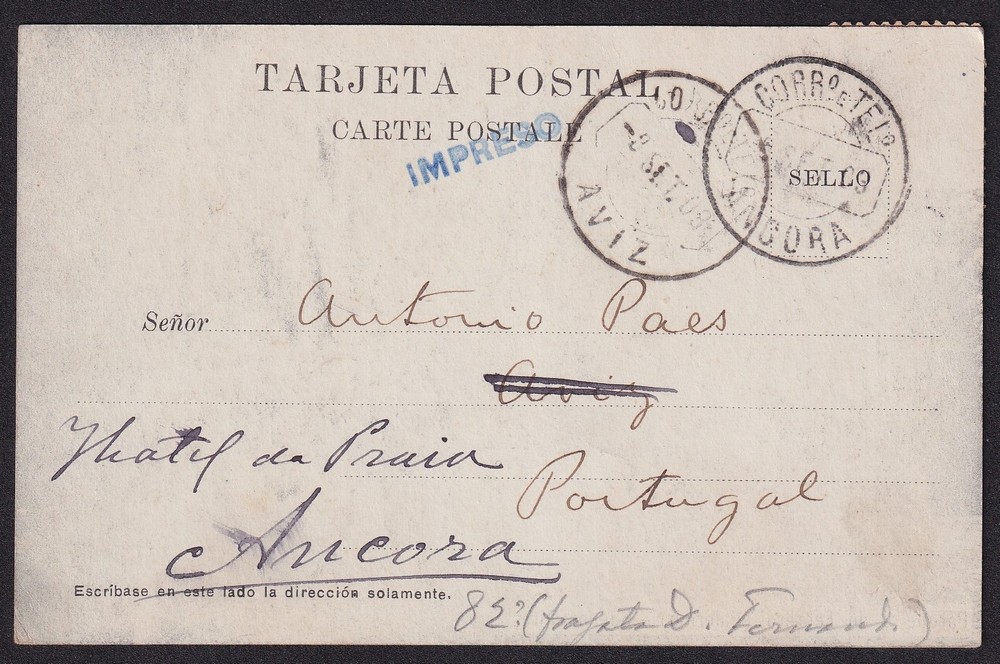 TARJETA POSTAL
CARTE POSTALE
IMPRESO
AVIZ
-8 SET 08
CORRO E TELO
ANCORA
SELLO
Señor Antonio Paes
Aviz
Hotel da Praia
Portugal
Ancora
Escríbase en este lado la dirección solamente.
(fragata D. Fernando)